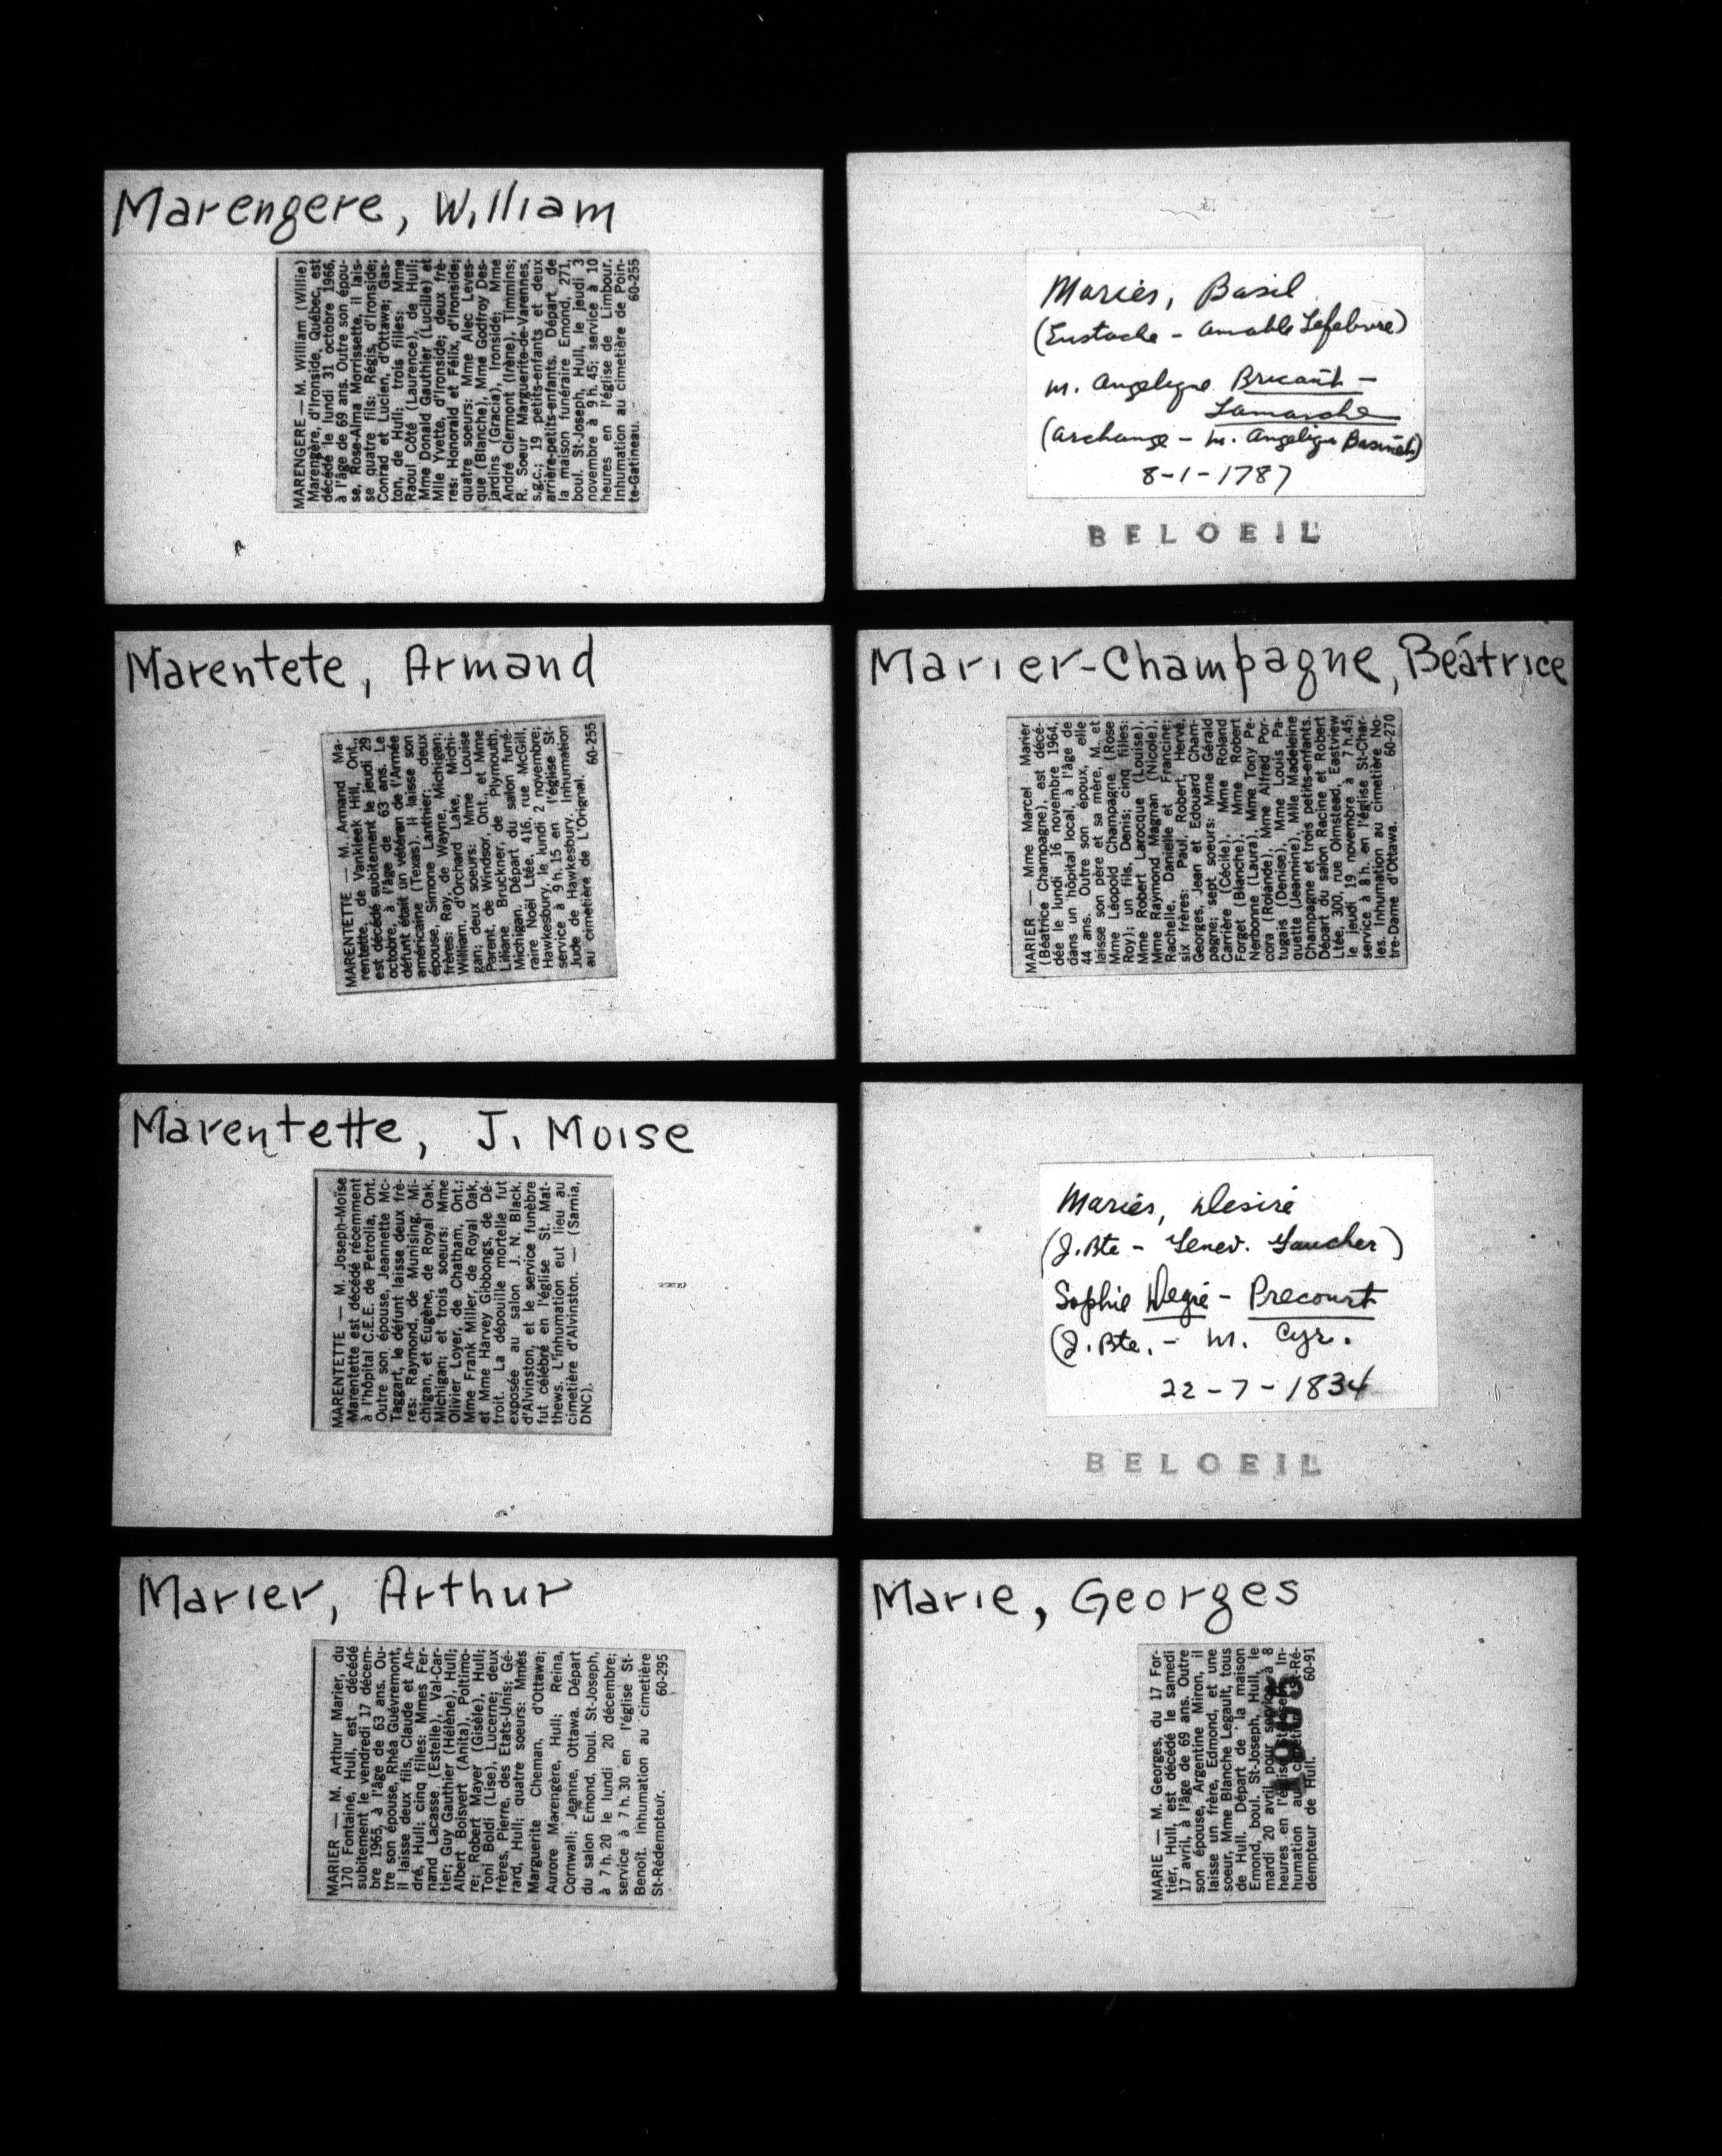 Marengere, William
MARENGERE — M. William (Willie)
Marengère, d'Ironside, Québec, est
décédé le lundi 31 octobre 1966,
à l'âge de 69 ans. Outre son épou-
se, Rose-Alma Morrissette, il lais-
se quatre fils: Régis, d'Ironside;
Conrad et Lucien, d'Ottawa; Gas-
ton, de Hull; trois filles: Mme
Raoul Côté (Laurence), de Hull;
Mme Donald Gauthier (Lucille) et
Mlle Yvette, d'Ironside; deux frè-
res: Honorald et Félix, d'Ironside;
quatre soeurs: Mme Alec Leves-
que (Blanche), Mme Godfroy Des-
jardins (Gracia), Ironside; Mme
André Clermont (Irène), Timmins;
R. Soeur Marguerite-de-Varennes,
s.g.c.; 19 petits-enfants et deux
arrière-petits-enfants. Départ de
la maison funéraire Emond, 271,
boul. St-Joseph, Hull, le jeudi 3
novembre à 9 h. 45; service à 10
heures en l'église de Limbour.
Inhumation au cimetière de Poin-
te-Gatineau. 60-255
Mariés, Basil
(Eustache - Amable Lefebvre)
m. Angelique Bricault -
Lamarche
(Archange - m. Angelique Basinet)
8-1-1787
BELOEIL
Marentete, Armand
MARENTETTE — M. Armand Ma-
rentette, de Vankleek Hill, Ont.,
est décédé subitement le jeudi 29
octobre, à l'âge de 63 ans. Le
défunt était un vétéran de l'Armée
américaine (Texas). Il laisse son
épouse, Simone Lanthier; deux
frères: Ray, de Wayne, Michigan;
William, d'Orchard Lake, Michi-
gan; deux soeurs: Mme Louise
Parent, de Windsor, Ont., et Mme
Liliane Bruckner, de Plymouth,
Michigan. Départ du salon funé-
raire Noël Ltée, 416, rue McGill,
Hawkesbury, le lundi 2 novembre;
service à 9 h. 15 en l'église St-
Jude de Hawkesbury. Inhumation
au cimetière de L'Orignal. 60-255
Marier-Champagne, Béatrice
MARIER — Mme Marcel Marier
(Béatrice Champagne), est décé-
dée le lundi 16 novembre 1964,
dans un hôpital local, à l'âge de
44 ans. Outre son époux, elle
laisse son père et sa mère, M. et
Mme Léopold Champagne (Rose
Roy); un fils, Denis; cinq filles:
Mme Robert Larocque (Louise),
Mme Raymond Magnan (Nicole),
Rachelle, Danielle et Francine;
six frères: Paul, Robert, Hervé,
Georges, Jean et Edouard Cham-
pagne; sept soeurs: Mme Gérald
Carrière (Cécile), Mme Roland
Forget (Blanche), Mme Robert
Nerbonne (Laura), Mme Tony Pe-
cora (Rolande), Mme Alfred Por-
tugais (Denise), Mme Louis Pa-
quette (Jeannine), Mlle Madeleine
Champagne et trois petits-enfants.
Départ du salon Racine et Robert
Ltée, 300, rue Olmstead, Eastview
le jeudi 19 novembre à 7 h.45;
service à 8 h. en l'église St-Char-
les. Inhumation au cimetière No-
tre-Dame d'Ottawa. 60-270
Marentette, J. Moise
MARENTETTE — M. Joseph-Moïse
Marentette est décédé récemment
à l'hôpital C.E.E. de Petrolia, Ont.
Outre son épouse, Jeannette Mc-
Taggart, le défunt laisse deux frè-
res: Raymond, de Munising, Mi-
chigan, et Eugène, de Royal Oak,
Michigan; et trois soeurs: Mme
Olivier Loyer, de Chatham, Ont.;
Mme Frank Miller, de Royal Oak,
et Mme Harvey Gibbongs, de Dé-
troit. La dépouille mortelle fut
exposée au salon J. N. Black,
d'Alvinston, et le service funèbre
fut célébré en l'église St. Mat-
thews. L'inhumation eut lieu au
cimetière d'Alvinston. — (Sarnia,
DNC).
Mariés, Desiré
(J. Bte - Genev. Gaucher)
Sophie Degré - Precourt
(J. Bte. - M. Cyr.
22-7-1834
BELOEIL
Marier, Arthur
MARIER — M. Arthur Marier, du
170 Fontaine, Hull, est décédé
subitement le vendredi 17 décem-
bre 1965, à l'âge de 63 ans. Ou-
tre son épouse, Rhéa Guévremont,
il laisse deux fils, Claude et An-
dré, Hull; cinq filles: Mmes Fer-
nand Lacasse (Estelle), Val-Car-
tier; Guy Gauthier (Hélène), Hull;
Albert Boisvert (Anita), Poltimo-
re; Robert Mayer (Gisèle), Hull;
Toni Boldi (Lise), Lucerne; deux
frères, Pierre, des Etats-Unis; Gé-
rard, Hull; quatre soeurs: Mmes
Marguerite Cheman, d'Ottawa;
Aurore Marengère, Hull; Reina,
Cornwall; Jeanne, Ottawa. Départ
du salon Emond, boul. St-Joseph,
à 7 h. 20 le lundi 20 décembre;
service à 7 h. 30 en l'église St-
Benoît. Inhumation au cimetière
St-Rédempteur. 60-295
Marie, Georges
MARIE — M. Georges, du 17 For-
tier, Hull, est décédé le samedi
17 avril, à l'âge de 69 ans. Outre
son épouse, Argentine Miron, il
laisse un frère, Edmond, et une
soeur, Mme Blanche Legault, tous
de Hull. Départ de la maison
Emond, boul. St-Joseph, Hull, le
mardi 20 avril pour service à 8
heures en l'église In-
humation au St-Ré-
dempteur de Hull. 60-91